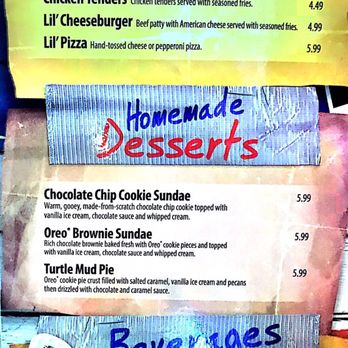 Chicken Tenders Chicken tenders served with seasoned fries. 4.49
Lil' Cheeseburger Beef patty with American cheese served with seasoned fries. 4.99
Lil' Pizza Hand-tossed cheese or pepperoni pizza. 5.99
Homemade
Desserts
Chocolate Chip Cookie Sundae 5.99
Warm, gooey, made-from-scratch chocolate chip cookie topped with
vanilla ice cream, chocolate sauce and whipped cream.
Oreo® Brownie Sundae 5.99
Rich chocolate brownie baked fresh with Oreo® cookie pieces and topped
with vanilla ice cream, chocolate sauce and whipped cream.
Turtle Mud Pie 5.99
Oreo® cookie pie crust filled with salted caramel, vanilla ice cream and pecans
then drizzled with chocolate and caramel sauce.
Beverages